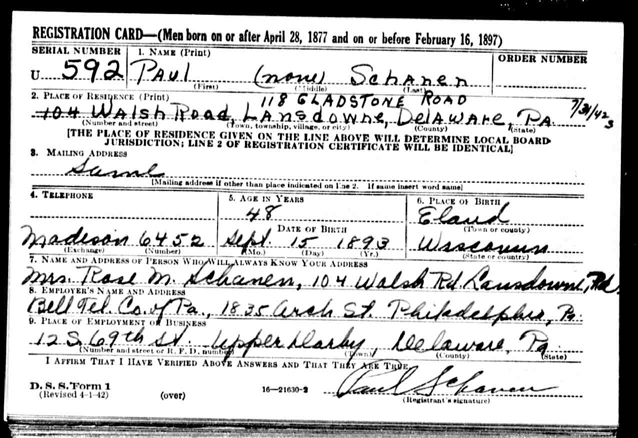 REGISTRATION CARD—(Men born on or after April 28, 1877 and on or before February 16, 1897)
SERIAL NUMBER 1. NAME (Print) ORDER NUMBER
U 592 PAUL (none) SCHANEN
(First) (Middle) (Last)
2. PLACE OF RESIDENCE (Print) 118 GLADSTONE ROAD
104 Walsh Road, Lansdowne, Delaware, Pa. 7/31/42
(Number and street) (Town, township, village, or city) (County) (State)
[THE PLACE OF RESIDENCE GIVEN ON THE LINE ABOVE WILL DETERMINE LOCAL BOARD
JURISDICTION; LINE 2 OF REGISTRATION CERTIFICATE WILL BE IDENTICAL]
3. MAILING ADDRESS
Same
[Mailing address if other than place indicated on line 2. If same insert word same]
4. TELEPHONE 5. AGE IN YEARS 6. PLACE OF BIRTH
48 Eland
DATE OF BIRTH (Town or county)
Madison 6452 Sept. 15 1893 Wisconsin
(Exchange) (Number) (Mo.) (Day) (Yr.) (State or country)
7. NAME AND ADDRESS OF PERSON WHO WILL ALWAYS KNOW YOUR ADDRESS
Mrs. Rose M. Schanen, 104 Walsh Rd Lansdowne, Pa.
8. EMPLOYER'S NAME AND ADDRESS
Bell Tel. Co. of Pa., 1835 Arch St. Philadelphia, Pa.
9. PLACE OF EMPLOYMENT OR BUSINESS
12 S. 69th St. Upper Darby, Delaware, Pa.
(Number and street or R. F. D. number) (Town) (County) (State)
I AFFIRM THAT I HAVE VERIFIED ABOVE ANSWERS AND THAT THEY ARE TRUE.
Paul Schanen
D. S. S. Form 1 16—21630-2 (Registrant's signature)
(Revised 4-1-42) (over)